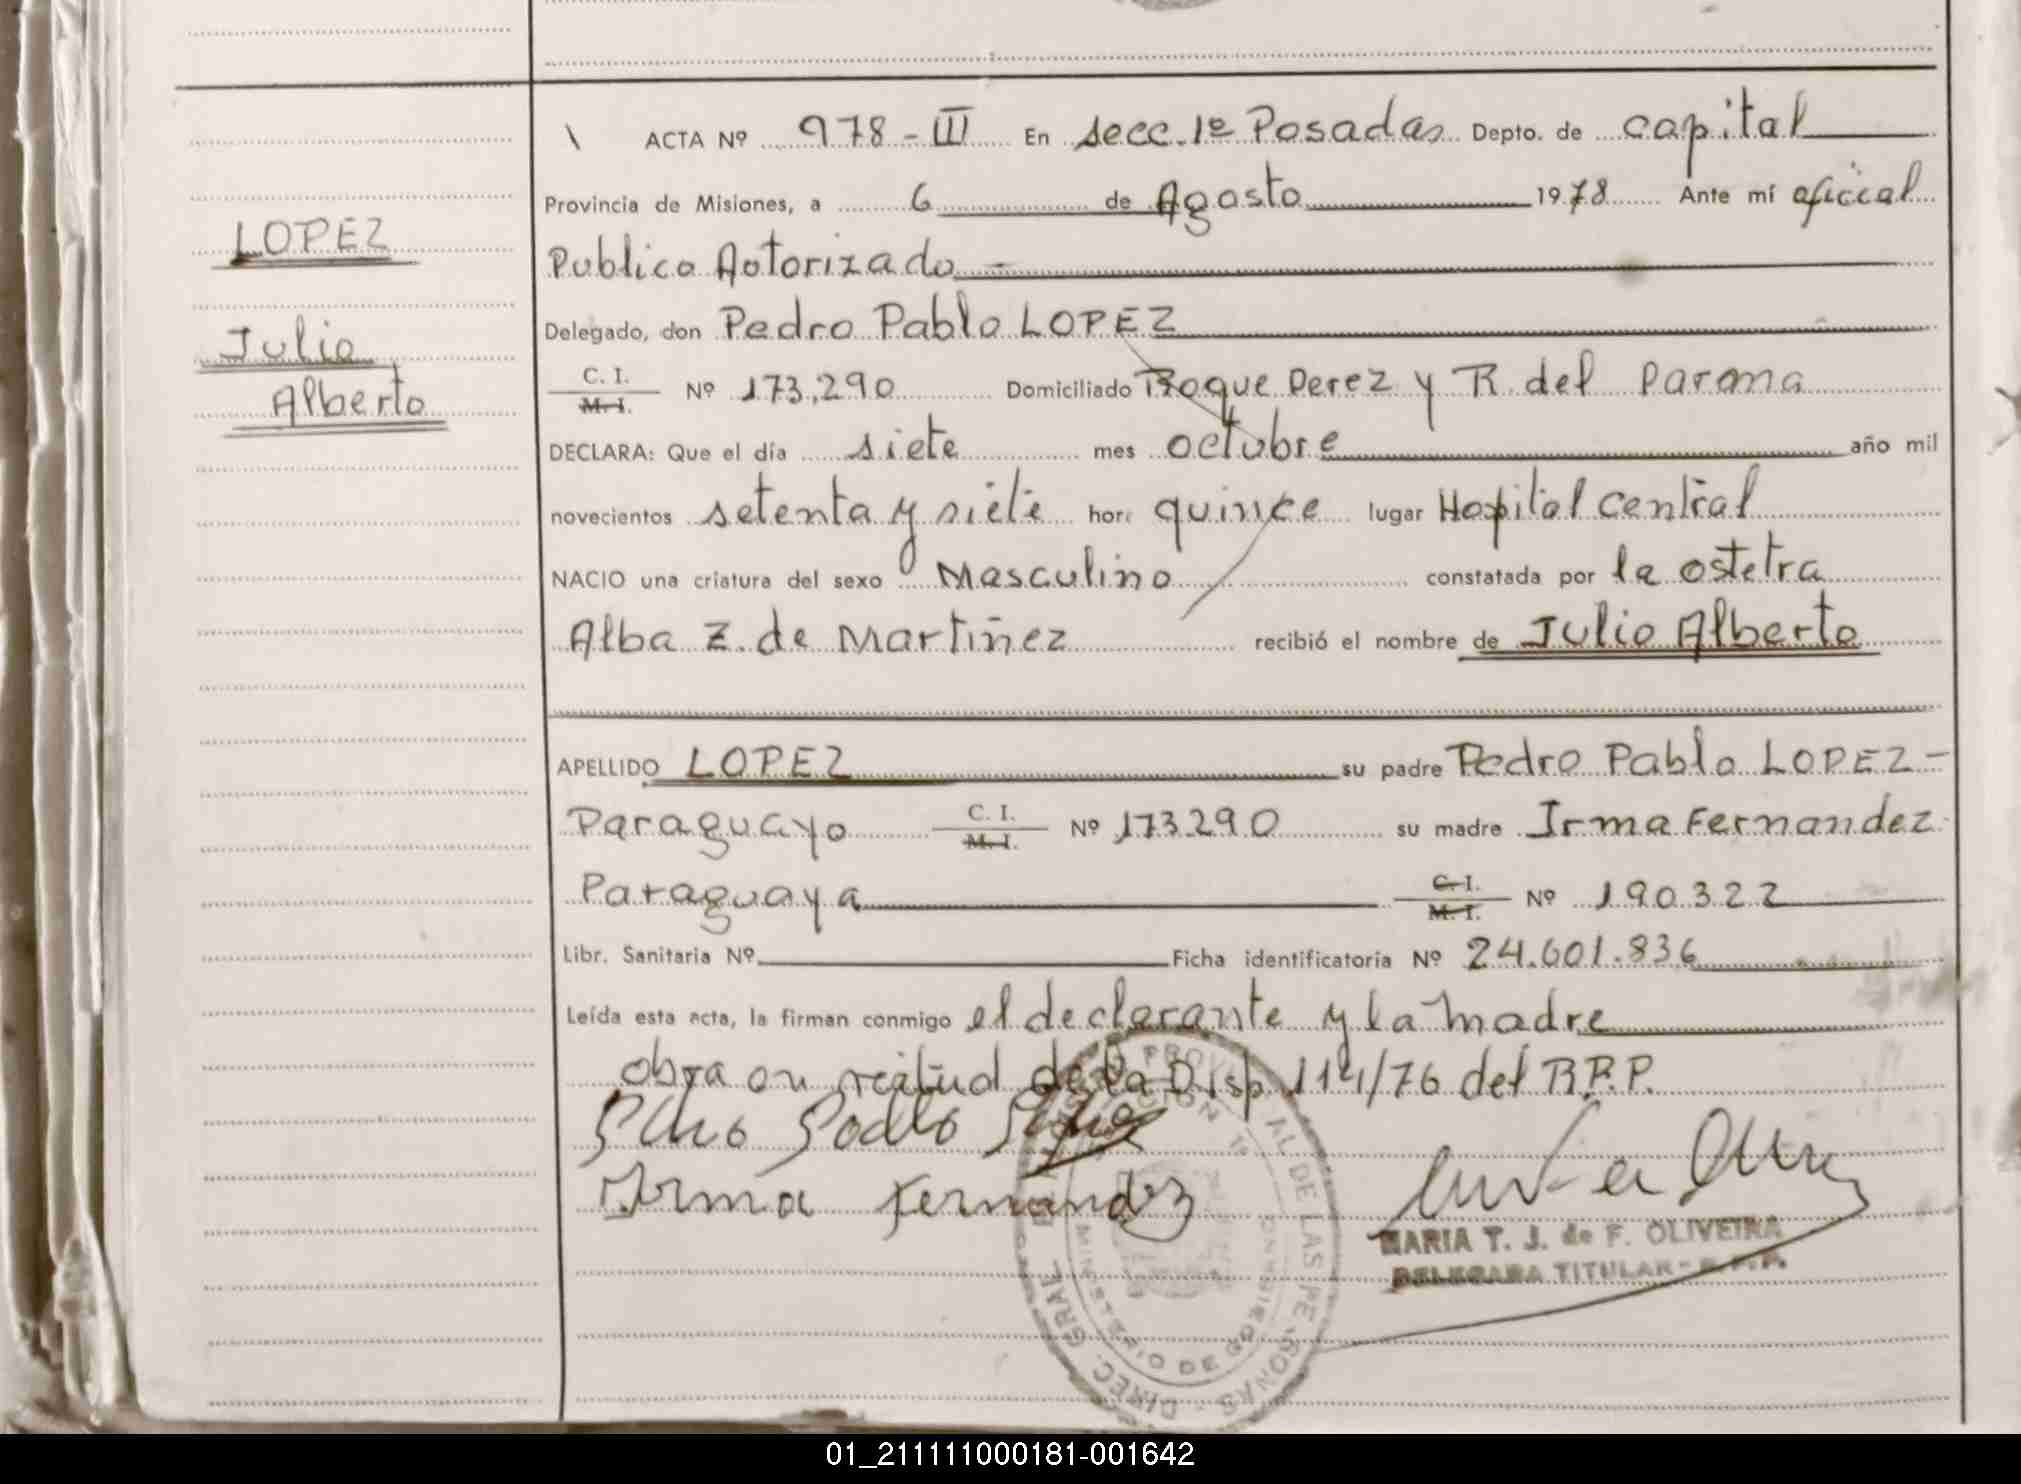 ACTA Nº 978-III En secc. 1º Posadas Depto. de capital
Provincia de Misiones, a 6 de Agosto 1978 Ante mí oficial
Publico Autorizado
LOPEZ
Delegado, don Pedro Pablo LOPEZ
Julio
C. I.
M. I. Nº 173,290 Domiciliado Roque Perez y R. del Parana
Alberto
DECLARA: Que el día siete mes octubre año mil
novecientos setenta y siete hora quince lugar Hospital Central
NACIO una criatura del sexo Masculino constatada por la ostetra
Alba Z. de Martiñez recibió el nombre de Julio Alberto
APELLIDO LOPEZ su padre Pedro Pablo LOPEZ-
Paraguayo C. I.
M. I. Nº 173290 su madre Irma Fernandez
Paraguaya C. I.
M. I. Nº 190322
Libr. Sanitaria Nº Ficha identificatoria Nº 24.601.836
Leída esta acta, la firman conmigo el declarante y la madre
obra en de la Disp 114/76 del R.P.P.
Irma Fernandez
MARIA T. J. de F. OLIVEIRA
DELEGADA TITULAR - R.P.P.
DIREC. GRAL. PROVINCIAL DE LAS PERSONAS
MINISTERIO DE GOBIERNO
01_211111000181-001642